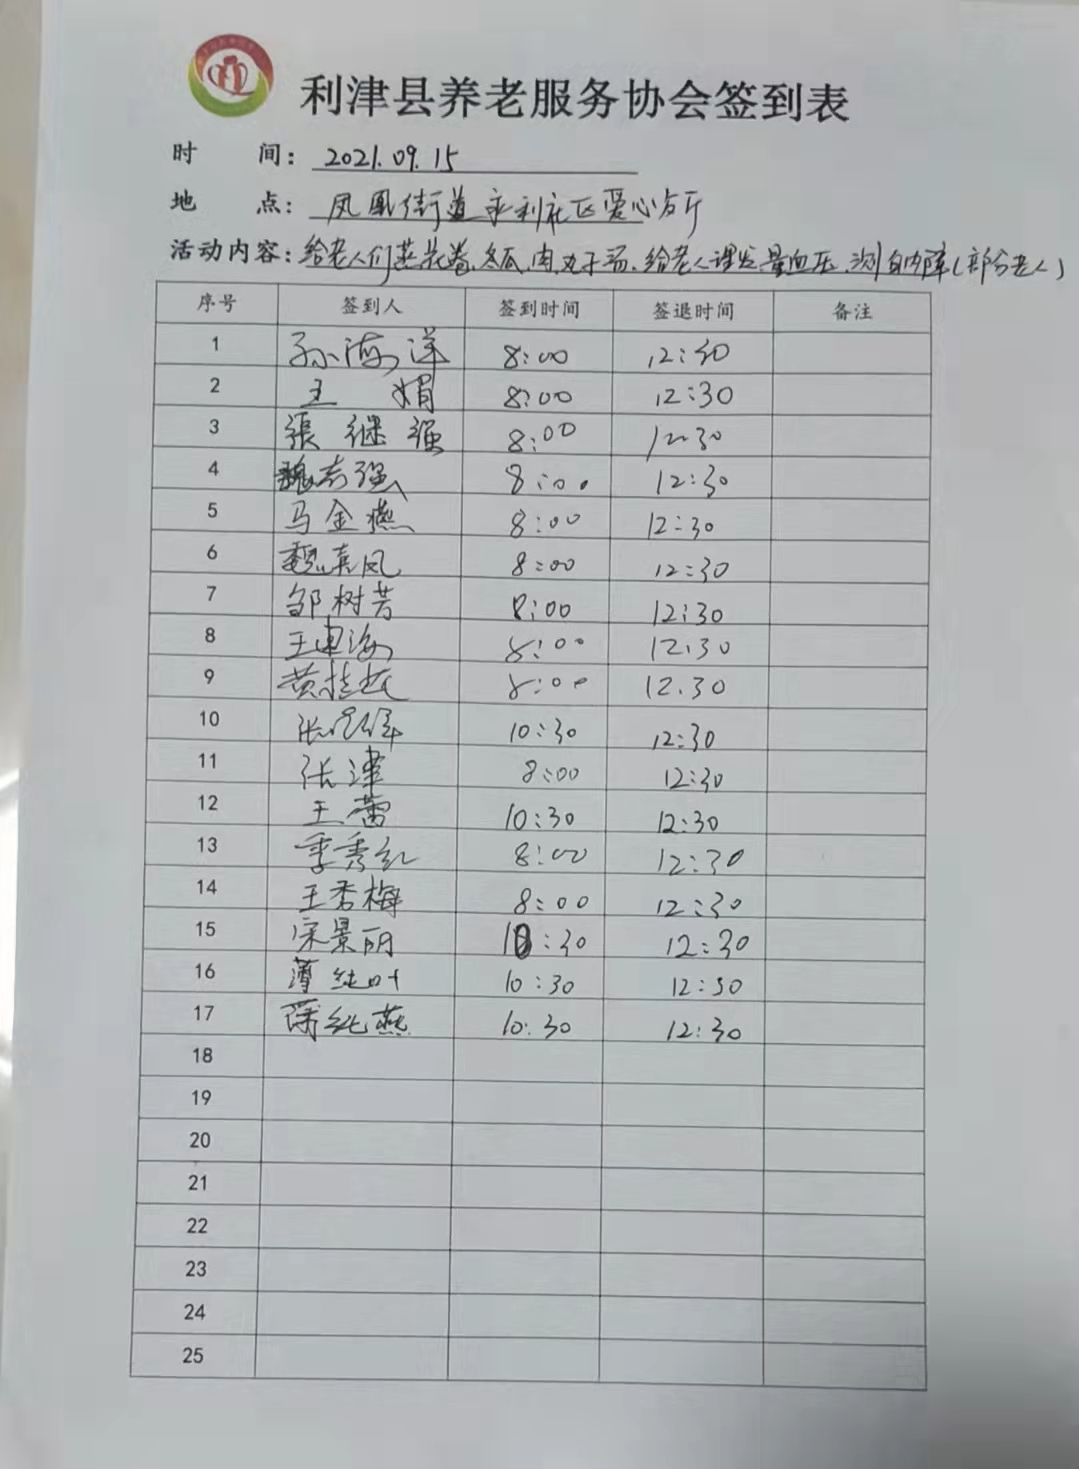 利津县养老服务协会签到表
时 间: 2021.09.15
地 点: 凤凰街道永利社区爱心食厅
活动内容: 给老人们蒸花卷、冬瓜、肉丸子汤、给老人理发量血压、测白内障(部分老人)
序号 签到人 签到时间 签退时间 备注
1 孙海洋 8:00 12:30
2 王娟 8:00 12:30
3 張继强 8:00 12:30
4 魏志强 8:00 12:30
5 马金燕 8:00 12:30
6 魏素凤 8:00 12:30
7 邹树芳 8:00 12:30
8 王建海 8:00 12.30
9 黄桂花 8:00 12.30
10 张 10:30 12:30
11 张津 8:00 12:30
12 王蕾 10:30 12:30
13 季秀红 8:00 12:30
14 王秀梅 8:00 12:30
15 宋景丽 10:30 12:30
16 薄纯叶 10:30 12:30
17 薄纯燕 10:30 12:30
18
19
20
21
22
23
24
25